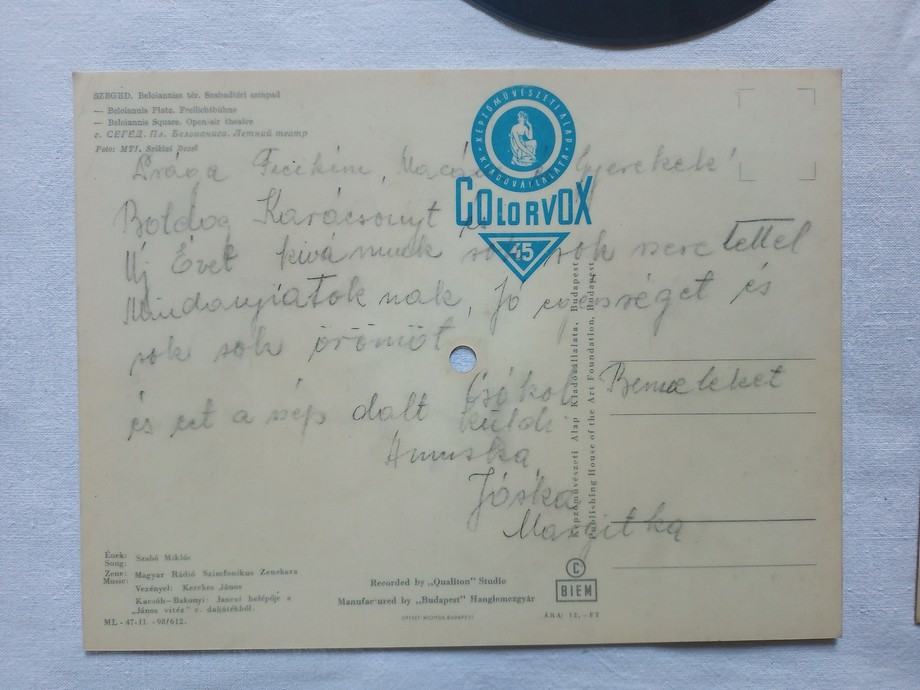 SZEGED. Beloiannisz tér. Szabadtéri színpad
— Beloiannis Platz. Freilichtbühne
— Beloiannis Square. Open-air theatre
г. СЕГЕД. Пл. Белоянниса. Летний театр
Foto: MTI. Sziklai Dezső
KÉPZŐMŰVÉSZETI ALAP KIADÓVÁLLALATA
COLORVOX
45
Drága Ficikém, Gyerekek!
Boldog Karácsonyt és
Uj Évet kivánunk sok sok szeretettel
Mindanyiatoknak, Jó egésséget és
sok sok örömöt
Csókol Benneteket
és ezt a szép dalt küldi
Annuska
Jóska
Margitka
Képzőművészeti Alap Kiadóvállalata, Budapest
Publishing House of the Art Foundation, Budapest
Ének: Song: Szabó Miklós
Zene: Music: Magyar Rádió Szimfonikus Zenekara
Vezényel: Kerekes János
Kacsóh—Bakonyi: Jancsi belépője a
„János vitéz" c. daljátékból.
ML - 47-II - 98/612.
Recorded by „Qualiton" Studio
Manufactured by „Budapest" Hanglemezgyár
OFFSET NYOMDA BUDAPEST
C
BIEM
ÁRA: 12,—FT